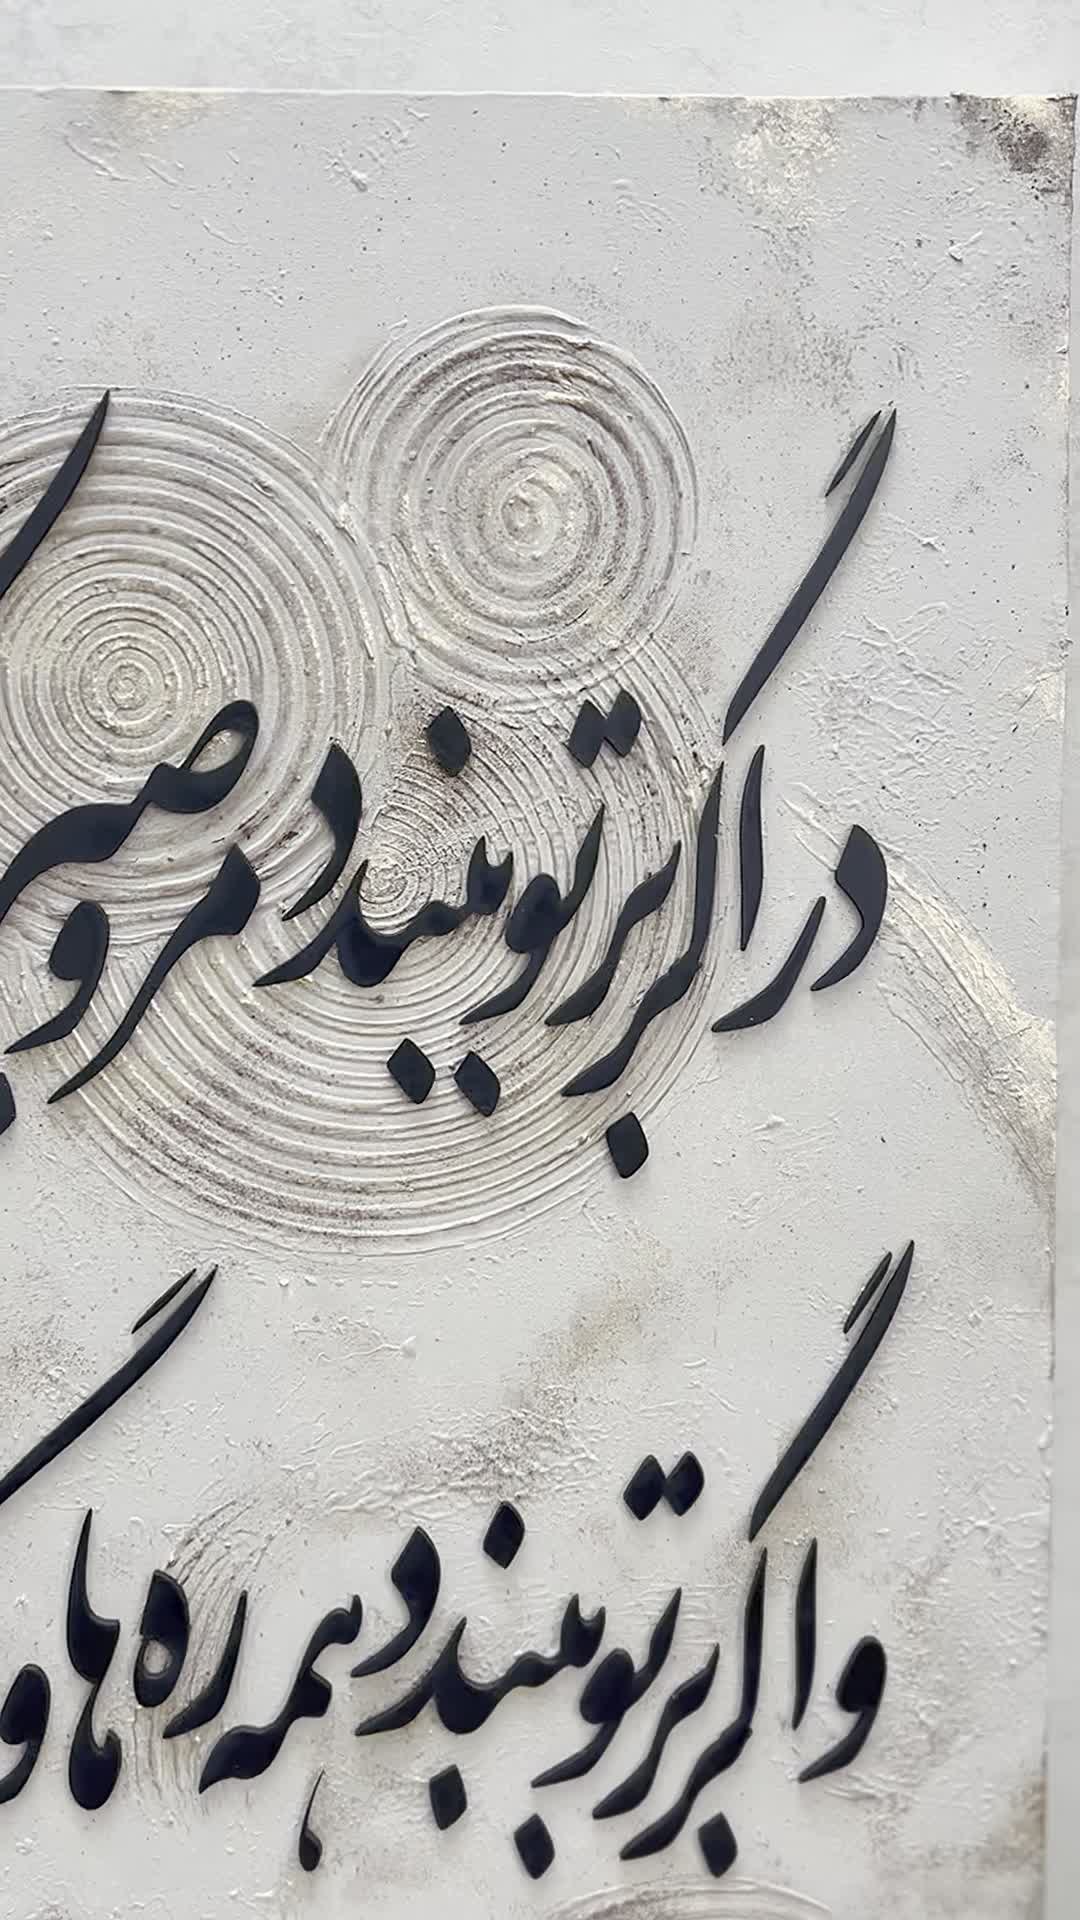 در اگر بر تو ببندد مرو و صبر
و اگر بر تو ببندد همه ره‌ها و